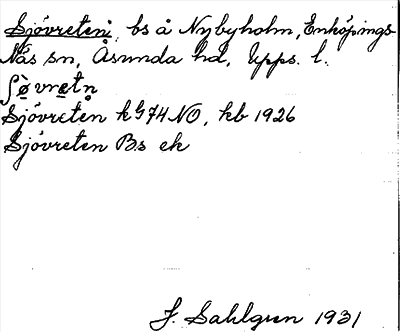 Sjövreten, bs å Nybyholm, Enköpings-
Näs sn, Åsunda hd, Upps. l.
ʃø̀vre̱tn̥
Sjövreten kG74NO, kb 1926
Sjövreten Bs ek
J. Sahlgren 1931